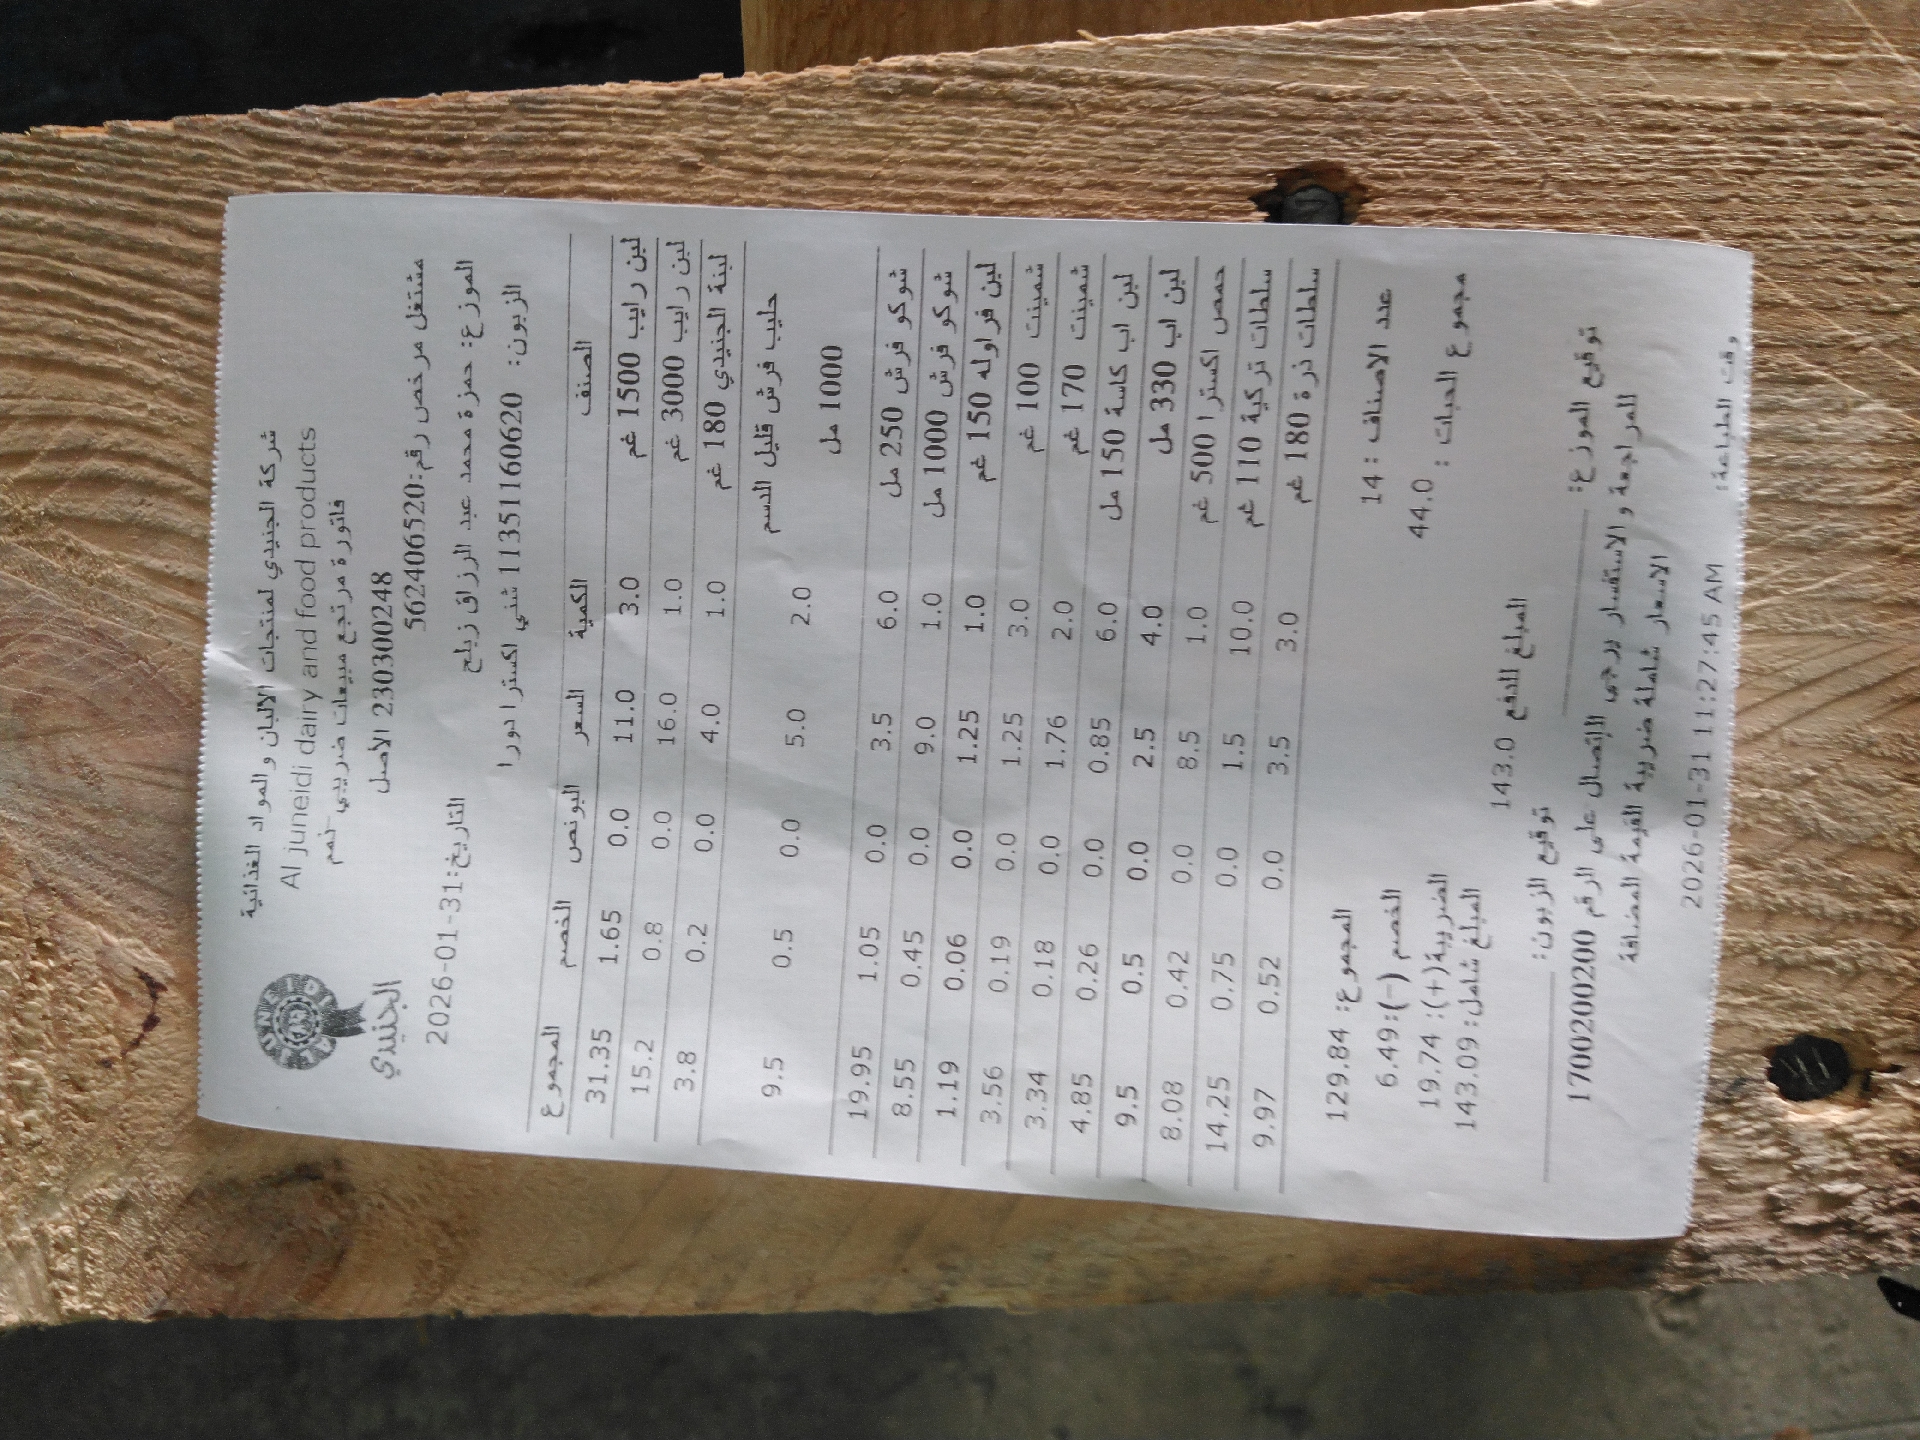 شركة الجنيدي لمنتجات الالبان والمواد الغذائية
Al juneidi dairy and food products
فاتورة مرتجع مبيعات ضريبي -نعم
230300248 الاصل
الجنيدي
مشتغل مرخص رقم:562406520
التاريخ:31-01-2026
الموزع: حمزة محمد عبد الرزاق زيلح
الزبون: 11351160620 شني اكسترا دورا
الصنف الكمية السعر البونص الخصم المجموع
لبن رايب 1500 غم 3.0 11.0 0.0 1.65 31.35
لبن رايب 3000 غم 1.0 16.0 0.0 0.8 15.2
لبنة الجنيدي 180 غم 1.0 4.0 0.0 0.2 3.8
حليب فرش قليل الدسم 2.0 5.0 0.0 0.5 9.5
1000 مل
شوكو فرش 250 مل 6.0 3.5 0.0 1.05 19.95
شوكو فرش 1000 مل 1.0 9.0 0.0 0.45 8.55
لبن فراوله 150 غم 1.0 1.25 0.0 0.06 1.19
شمينت 100 غم 3.0 1.25 0.0 0.19 3.56
شمينت 170 غم 2.0 1.76 0.0 0.18 3.34
لبن اب كاسة 150 مل 6.0 0.85 0.0 0.26 4.85
لبن اب 330 مل 4.0 2.5 0.0 0.5 9.5
حمص اكسترا 500 غم 1.0 8.5 0.0 0.42 8.08
سلطات تركية 110 غم 10.0 1.5 0.0 0.75 14.25
سلطات ذرة 180 غم 3.0 3.5 0.0 0.52 9.97
عدد الاصناف : 14 المجموع: 129.84
مجموع الحبات : 44.0 الخصم (-):6.49
الضريبة(+): 19.74
المبلغ شامل: 143.09
المبلغ للدفع 143.0
توقيع الموزع: توقيع الزبون:
للمراجعة والاستفسار يرجى الإتصال على الرقم 1700200200
الاسعار شاملة ضريبة القيمة المضافة
وقت الطباعة: 2026-01-31 11:27:45 AM